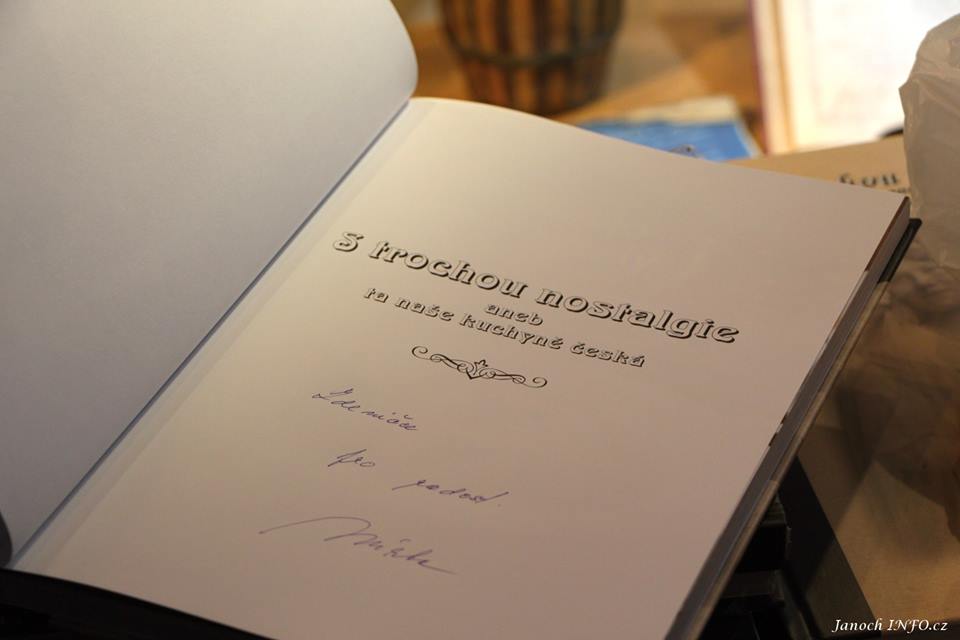 S trochou nostalgie
aneb
ta naše kuchyně česká
Zdeničce
pro radost.
Janoch INFO.cz